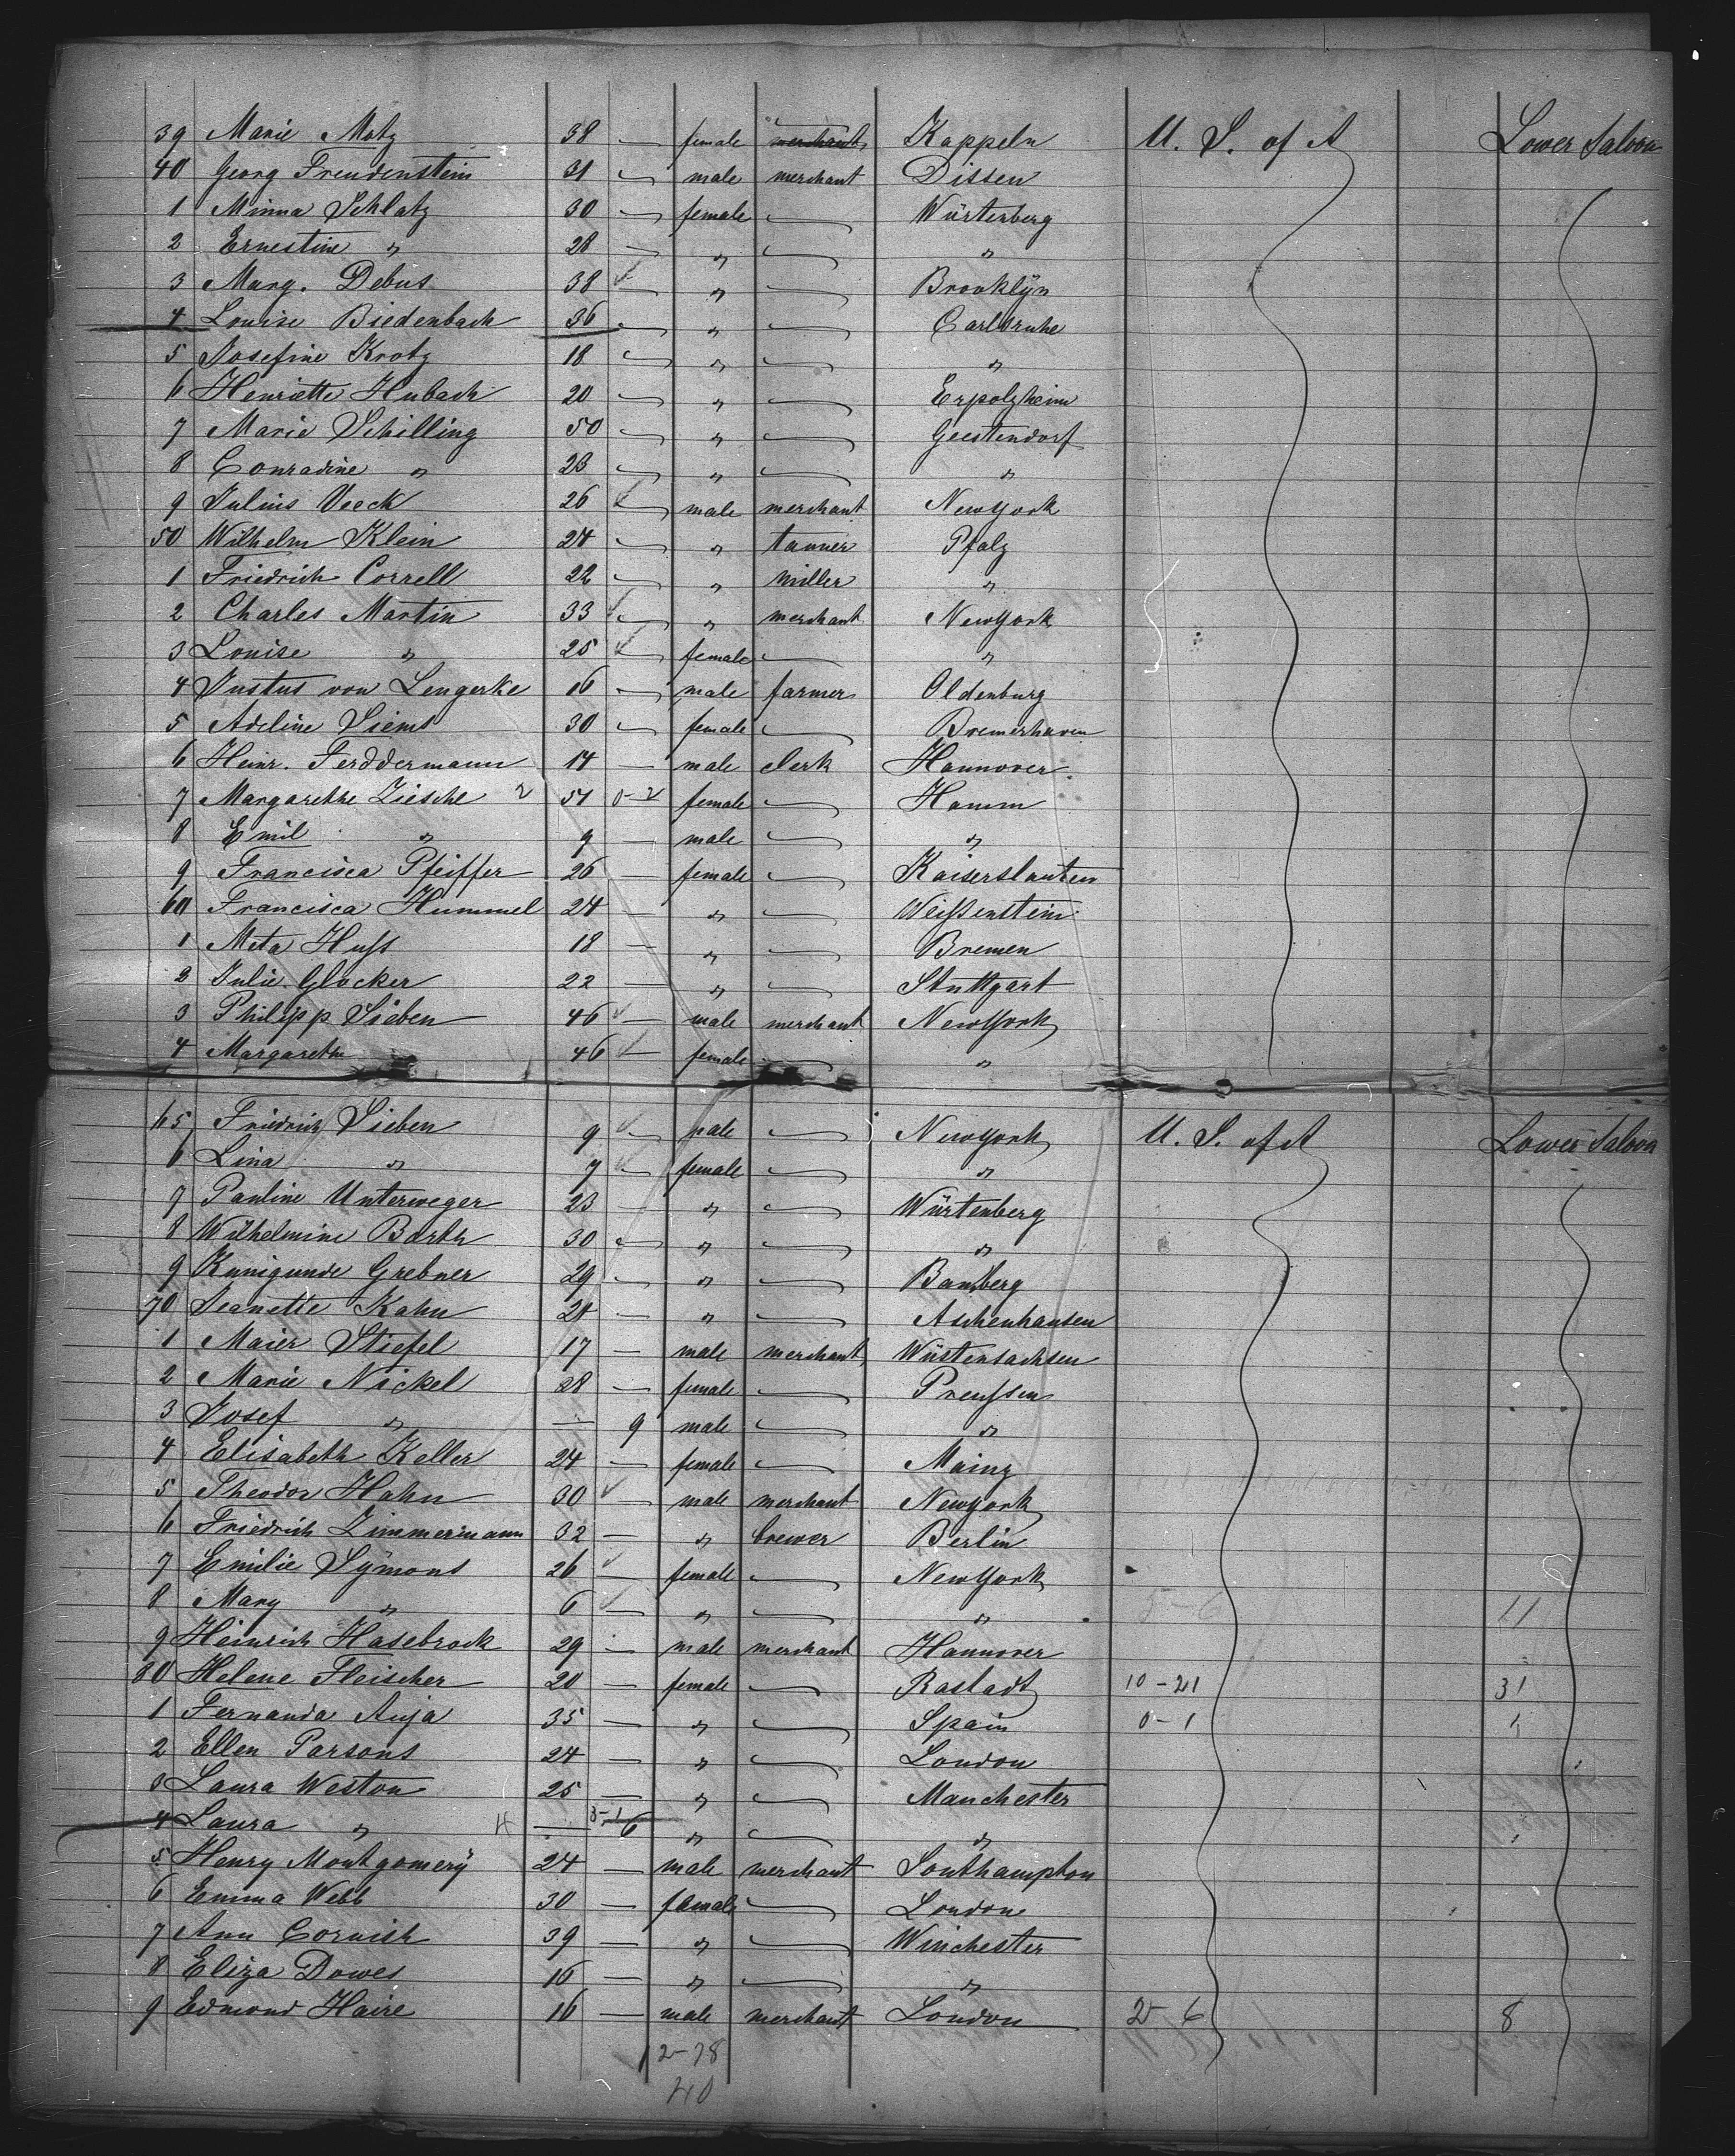 39 Marie Motz 38 — female merchant Kappeln U. S. of A Lower Saloon
40 Georg Freudenstein 31 — male merchant Dissen
1 Minna Schlatz 30 — female — Würtenberg
2 Ernestine " 28 — " — "
3 Marg. Debus 38 ✓ " — Brooklÿn
4 Louise Biedenbach 36 — " — Carlsruhe
5 Josefine Krotz 18 — " — "
6 Henriette Hubach 20 — " — Erpolzheim
7 Marie Schilling 50 — " — Geestendorf
8 Conradine " 23 — " — "
9 Julius Veeck 26 ✓ male merchant NewYork
50 Wilhelm Klein 24 — " tanner Pfalz
1 Friedrich Correll 22 — " miller "
2 Charles Martin 33 ✓ " merchant NewYork
3 Louise " 25 ✓ female — "
4 Justus von Lengerke 16 — male farmer Oldenburg
5 Adeline Siems 30 — female — Bremerhaven
6 Heinr. Ferddermann 14 — male clerk Hannover
7 Margarethe Ziesche 2 51 0-2 female — Hamm
8 Emil " 9 — male — "
9 Francisca Pfeiffer 26 — female — Kaiserslautern
60 Francisca Hummel 24 — " — Weißenstein
1 Meta Huß 18 — " — Bremen
2 Julie Glocker 22 — " — Stuttgart
3 Philipp Sieben 46 ✓ male merchant NewYork
4 Margarethe 46 ✓ female — "
65 Friedrich Sieben 9 ✓ male — NewYork U. S. of A Lower Saloon
6 Lina " 7 ✓ female — "
7 Pauline Unterweger 23 — " — Würtenberg
8 Wilhelmine Barth 30 — " — "
9 Kunigunde Grebner 29 — " — Bamberg
70 Jeanette Kahn 21 — " — Aschenhausen
1 Maier Stiefel 17 — male merchant Wüstensachsen
2 Marie Nickel 28 — female — Preußen
3 Josef " — 9 male — "
4 Elisabeth Keller 24 — female — Mainz
5 Theodor Hahn 30 ✓ male merchant NewYork
6 Friedrich Zimmermann 32 — " brewer Berlin
7 Emilie Sÿmons 26 ✓ female — NewYork
8 Mary " 6 ✓ " — " 5-6 11
9 Heinrich Hasebrock 29 — male merchant Hannover
80 Helene Fleischer 20 — female — Rastadt 10-21 31
1 Fernanda Auja 35 — " — Spain 0-1 1
2 Ellen Parsons 24 — " — London
3 Laura Weston 25 — " — Manchester
4 Laura " — 6 " — "
5 Henry Montgomerÿ 24 — male merchant Southampton
6 Emma Webb 30 — female — London
7 Ann Cornish 39 — " — Winchester
8 Eliza Dowes 16 — " — "
9 Edmond Haire 16 — male merchant London 2-6 8
12-28
40